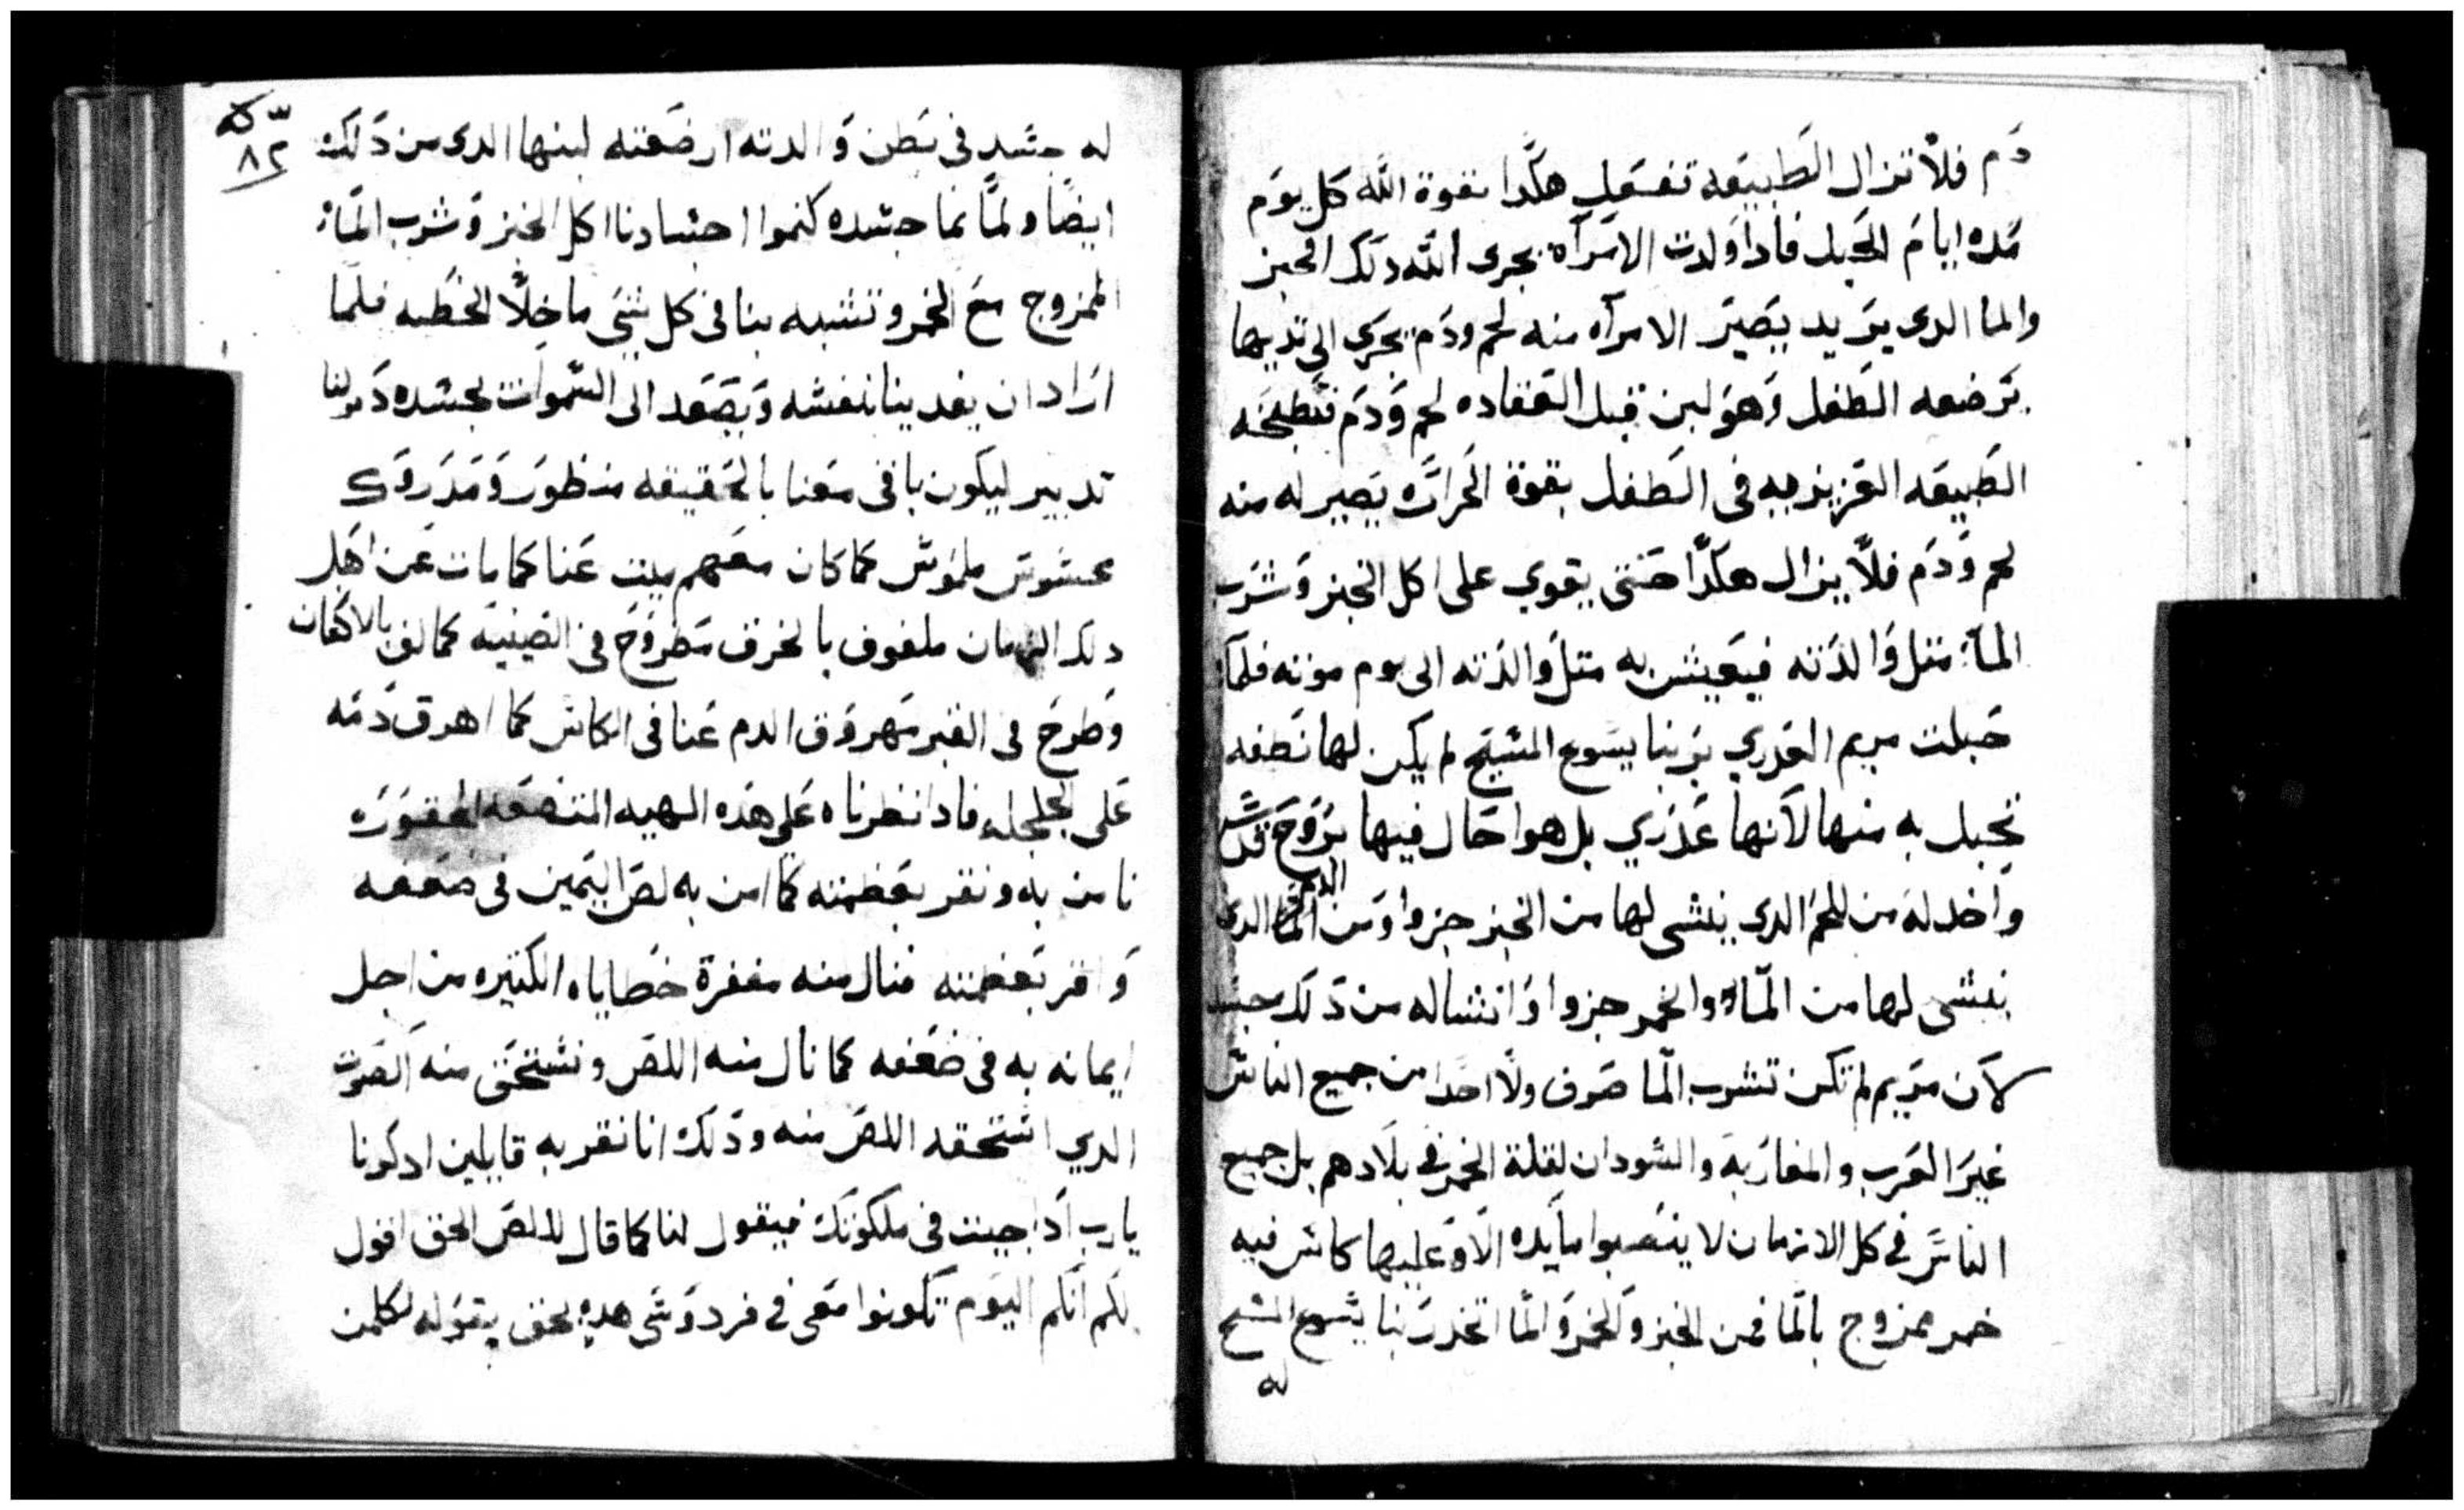 دم فلا تزال الطبيعه تفعل هكدا بقوة الله كل يوم
مده ايام الحبل فادا ولدت الامرآه يجرى الله دلك الخبز
والما الدى يريد يصير الامرآه منه لحم ودم يجرى الى تديها
ترضعه الطفل وهو لبن قبل انعقاده لحم ودم فتطبخه
الطبيعه الغريزيه فى الطفل بقوة الحراره يصير له منه
لحم ودم فلا يزال هكدا حتى يقوي على اكل الخبز وشرب
المآ متل والدته فيعيش به متل والدته الى يوم موته فلما
حبلت مريم العدري بربنا يسوع المسيح لم يكن لها نطفه
تحبل به منها لآنها عدري بل هوا حال فيها بروح قدس
واخد له من اللحم الدى ينشى لها من الخبز جزوا ومن الدم الدى
ينشى لها من المآء والخمر جزوا وانشا له من دلك جسد
لآن مريم لم تكن تشرب الما صرف ولا احدا من جميع الناس
غير العرب والمغاربه والسودان لقلة الخمر في بلادهم بل جميع
الناس في كل الازمان لا ينصبوا مايده الا وعليها كاس فيه
خمر ممزوج بالما فمن الخبز والخمر والما اتخد ربنا يسوع المسيح
له
٨٢
له جسد فى بطن والدته ارضعته لبنها الدى من دلك
ايضا ولما نما جسده كنموا اجسادنا اكل الخبز وشرب المآء
الممزوج مع الخمر وتشبه بنا فى كل شي ما خلا الخطيه فلما
اراد ان يفدينا بنفسه ويصعد الى السموات بجسده دبر لنا
تدبير ليكون باقى معنا بالحقيقه منظور ومدروك
محسوس ملموس كما كان معهم ميت عنا كما مات عن اهل
دلك الزمان ملفوف بالخرق مطروح فى الصينيه كما لف بالاكفان
وطرح فى القبر مهروق الدم عنا فى الكاس كما اهرق دمه
على الجلجله فادا نظرناه على هده الهيه المتضعه المحقوره
نامن به ونقر بعظمته كما امن به لص اليمين فى ضعفه
واقر بعظمته فنال منه مغفرة خطاياه الكتيره من اجل
ايمانه به فى ضعفه كما نال منه اللص ونستحق منه الصوت
الدي استحقه اللص منه ودلك انا نقر به قايلين ادكرنا
يارب ادا جيت فى ملكوتك فيقول لنا كما قال للص الحق اقول
لكم انكم اليوم تكونوا معى في فردوسى هده بحق يقوله لكلمن